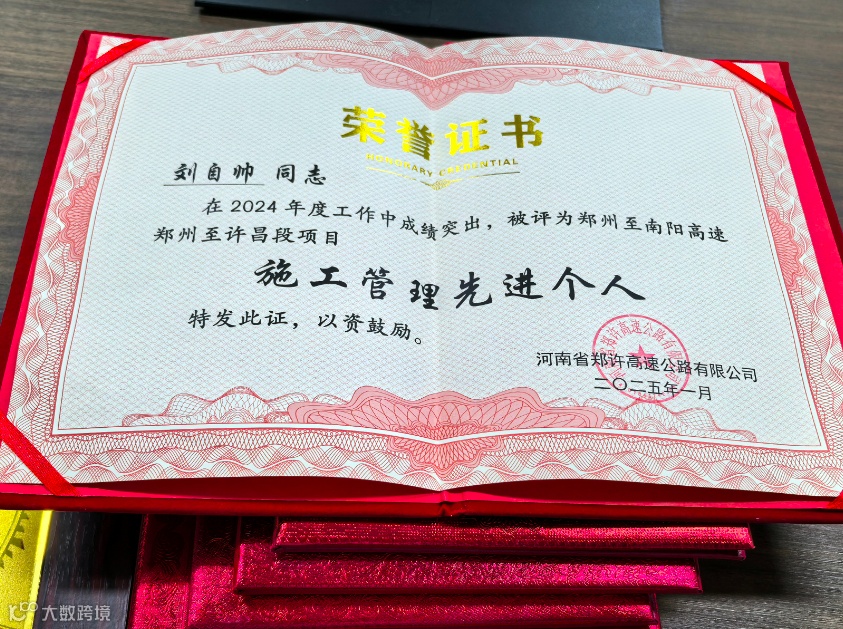 荣誉证书
HONORARY CREDENTIAL
刘自帅 同志
在 2024 年度工作中成绩突出，被评为郑州至南阳高速
郑州至许昌段项目
施工管理先进个人
特发此证，以资鼓励。
河南省郑许高速公路有限公司
二〇二五年一月
大数跨境